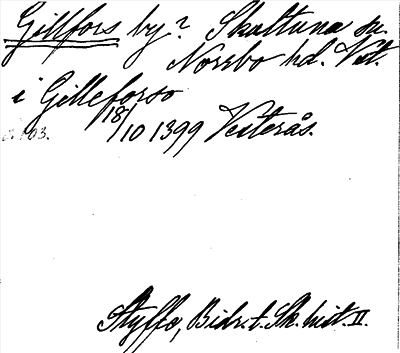 Gillfors by? Skultuna sn.
Norrbo hd. Vstl.
i Gilleforso
18/10 1399 Vesterås.
Styffe, Bidr. t. Sk. hist. II.